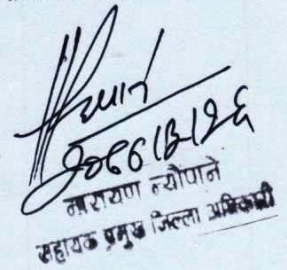 २०६६।३।२६
नारायण न्यौपाने
सहायक प्रमुख जिल्ला अधिकारी